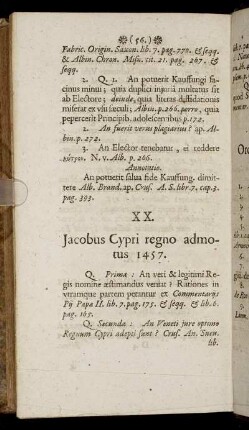 ❀( 56. )❀
Fabric. Origin. Saxon. lib. 7. pag. 772. & seqq.
& Albin. Chron. Misn. tit. 21. pag. 267. &
seqq.
2. Q. 1. An potuerit Kauffungi fa-
cinus minui; quia duplici injuriâ mulctatus sit
ab Electore; deinde, quia literas diffidationis
miserat ex usu sæculi; Albin. p. 266. porro, quia
pepercerit Principib. adolescentibus p. 172.
2. An fuerit verus plagiarius? ap. Al-
bin. p. 272.
3. An Elector tenebatur, ei reddere
N. v. Alb. p. 266.
Annotatio.
An potuerit salva fide Kauffung. diroi-
tere Alb. Brand. ap. Crus. A. S. libr. 7. cap. 3.
pag. 393.
XX.
Jacobus Cypri regno admo-
tus 1457.
Q. Prima: An veri & legitimi Re-
gis nomine æstimandus veniat? Rationes in
utramque partem petantur ex Commentariis
Pij Papæ II. lib. 7. pag. 175. & seqq. & lib. 6.
pag. 165.
Q. Secunda: An Veneti jure optimo
Regnum Cypri adepti sunt? Crus. An. Suev.
lib.